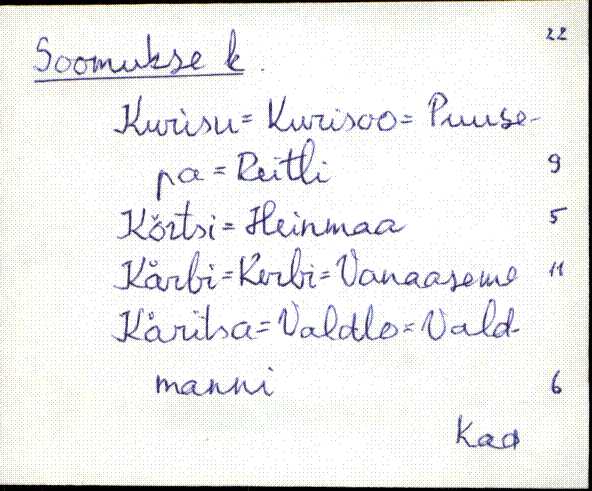 22
Soomukse k.
Kurisu = Kurisoo = Puuse-
pa = Reitli
9
Kõrtsi = Heinmaa
5
Kårbi = Kerbi = Vanaaseme
11
Kåritsa = Valdlo = Vald-
manni
6
Kad